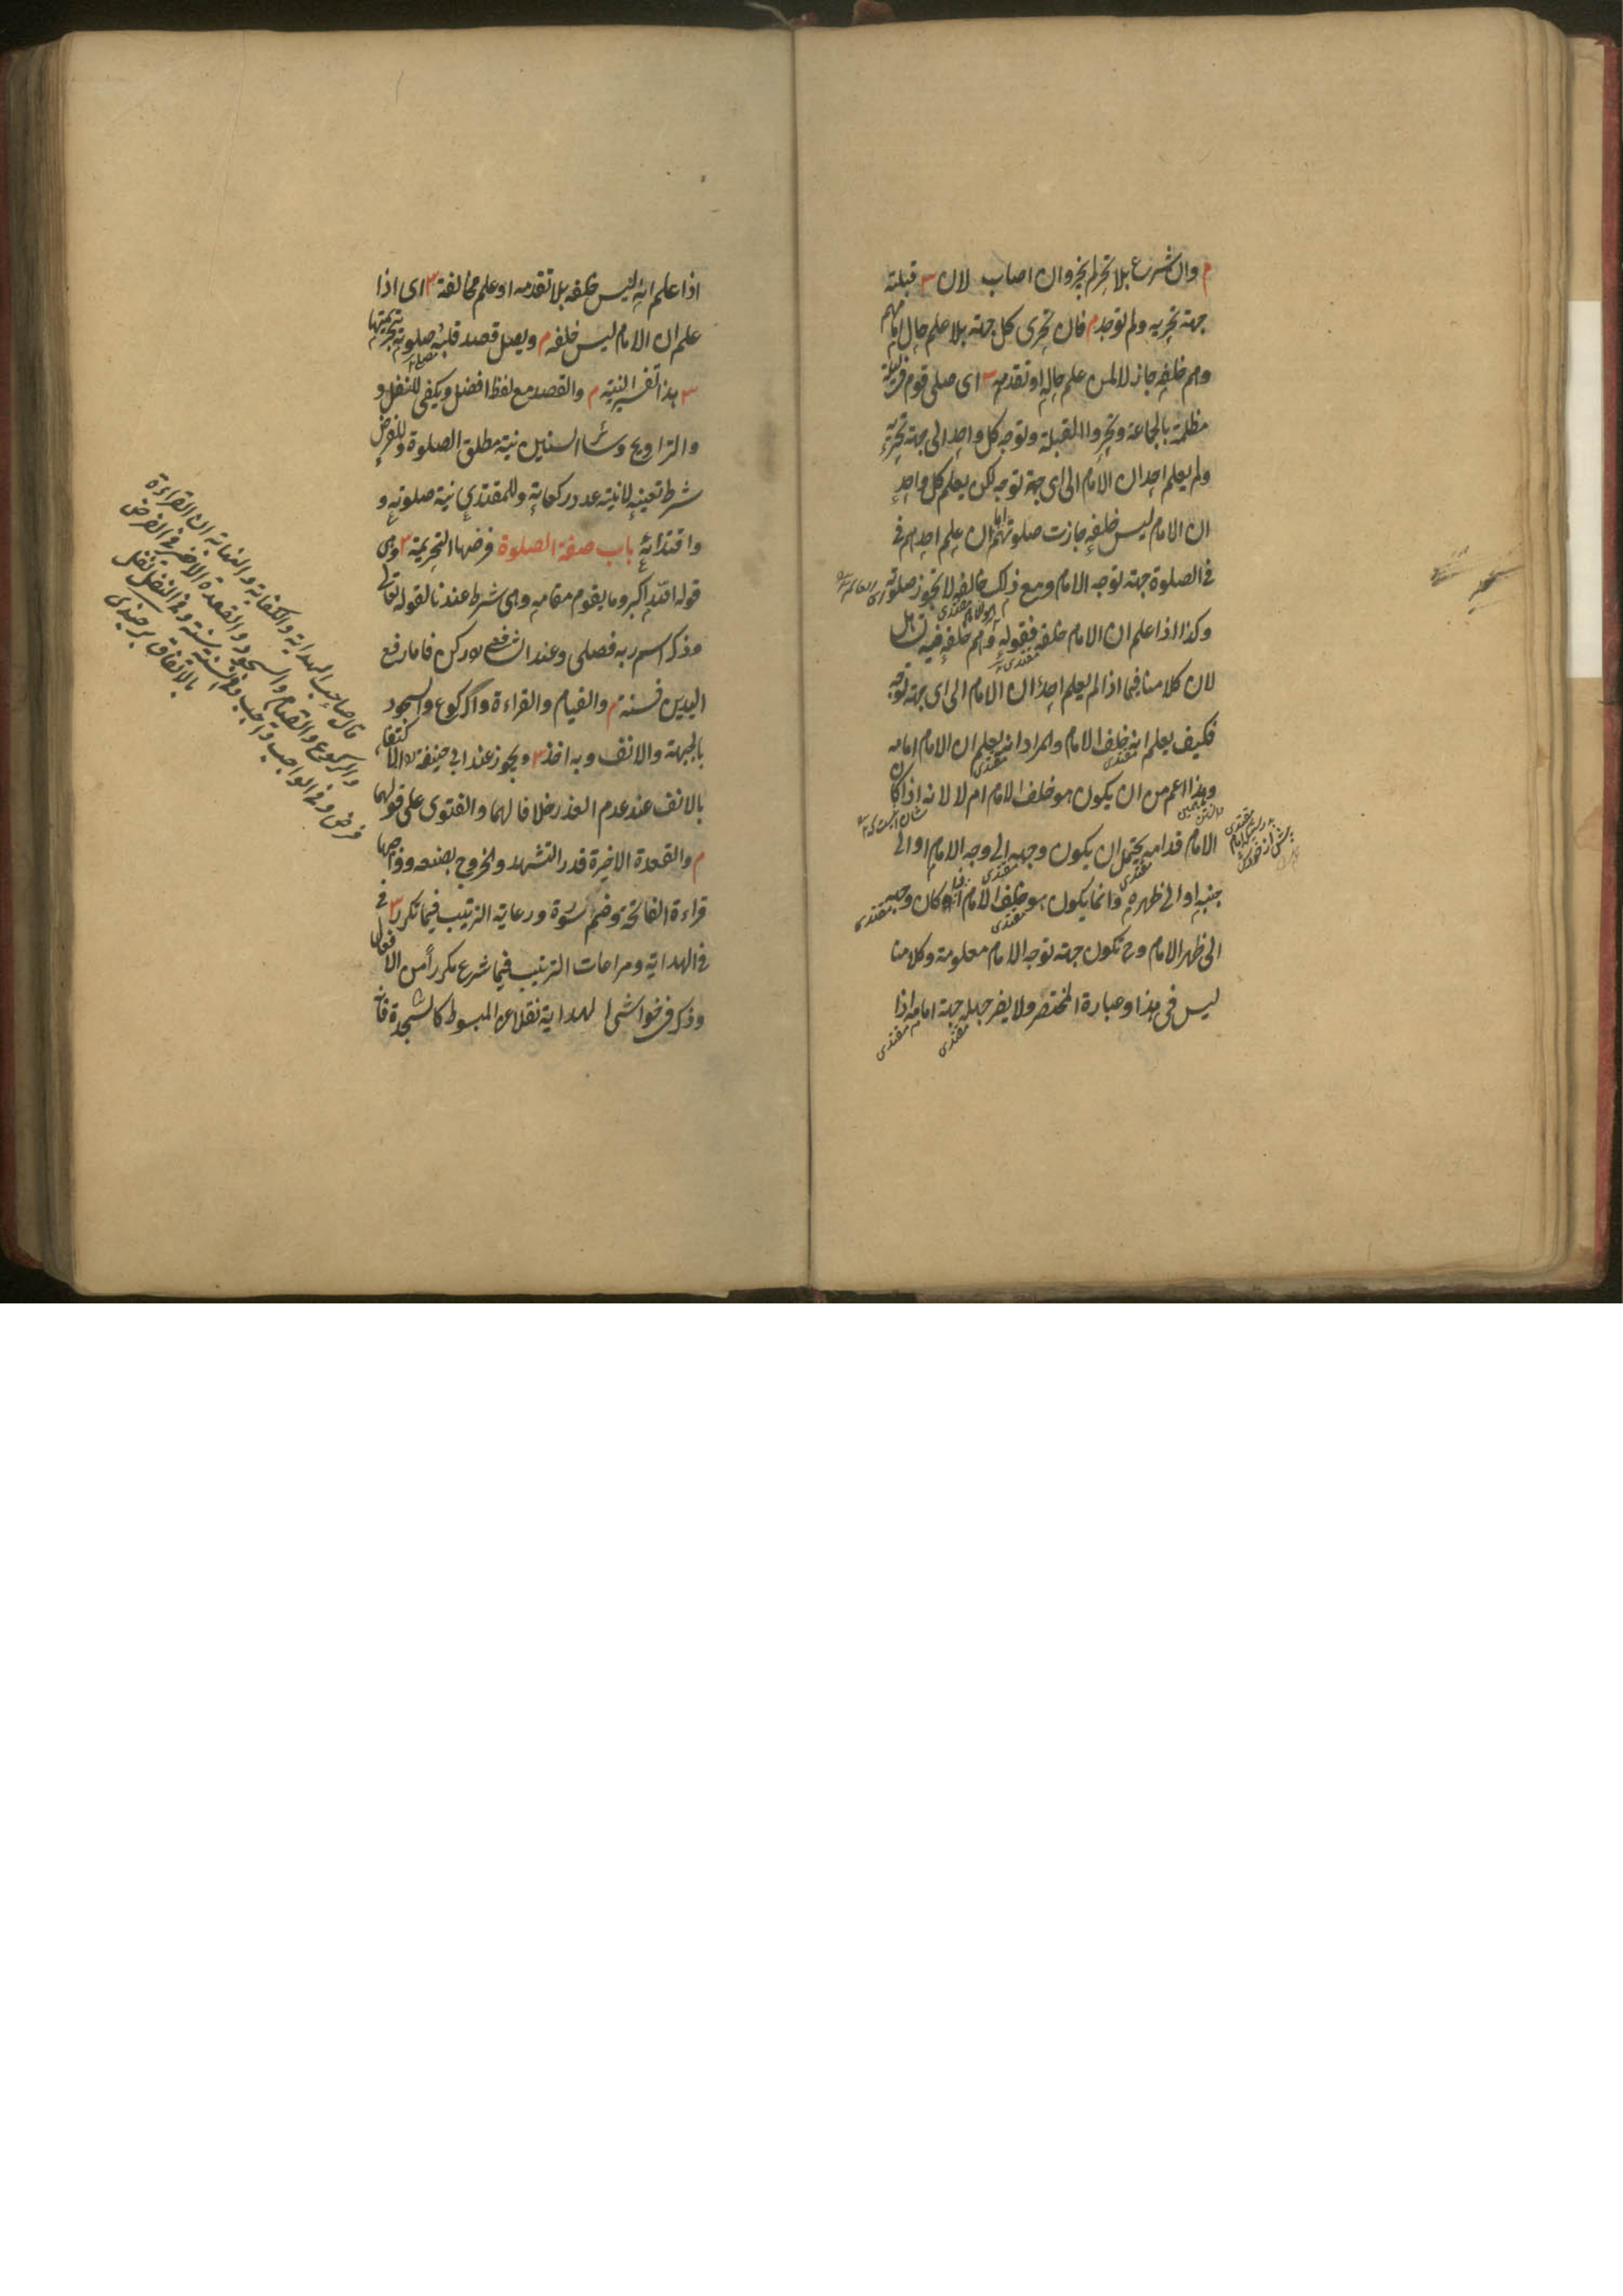 م وان شرع بلا تحر لم يجز وان اصاب لان س قبلته
جهة تحريه ولم توجد م فان تحرى كل جهة بلا علم حال امامهم
وهم خلفه جاز لا لمن علم حاله او تقدمه س اى صلى قوم فى ليلة
مظلمة بالجماعة وتحروا القبلة وتوجه كل واحد الى جهة تحريه
ولم يعلم احد ان الامام الى اى جهة توجه لكن يعلم كل واحد
ان الامام ليس خلفه جازت صلوتهم اما ان علم احدهم فى
فى الصلوة جهة توجه الامام ومع ذلك خالفه لا تجوز صلوته
وكذا اذا علم ان الامام خلفه فقوله وهم خلفه فيه تساهل
لان كلامنا فيما اذا لم يعلم احد ان الامام الى اى جهة توجه
فكيف يعلم انه خلف الامام والمراد انه يعلم ان الامام امامه
وهذا اعم من ان يكون هو خلف الامام ام لا لانه اذا كان
الامام قدامه يحتمل ان يكون وجهه الى وجه الامام او الى
جنبه او الى ظهره وانما يكون هو خلف الامام اذا كان وجهه
الى ظهر الامام وح تكون جهة توجه الامام معلومة وكلامنا
ليس فى هذا وعبارة المختصر ولا يضر جهله جهة امامه اذا
مقتدى
مقتدى
اذا علم انه ليس خلفه بلا تقدمه او علم مخالفة س اى اذا
علم ان الامام ليس خلفه م ويصل قصد قلبه صلوته بتحريمتها
س هذا تفسير النية م والقصد مع لفظ افضل ويكفى للنفل و
والتراويح وسائر السنن نية مطلق الصلوة وللفرض
شرط تعيينه لا نية عدد ركعاته وللمقتدى نية صلوته و
واقتدائه باب صفة الصلوة فرضها التحريمة س وهى
قوله الله اكبر وما يقوم مقامه وهى شرط عندنا لقوله تعالى
وذكر اسم ربه فصلى وعند الشافعى ركن فاما رفع
اليدين فسنة م والقيام والقراءة والركوع والسجود
بالجبهة والانف وبه اخذ س ويجوز عند ابى حنيفة الاكتفاء
بالانف عند عدم العذر خلافا لهما والفتوى على قولهما
م والقعدة الاخيرة قدر التشهد والخروج بصنعه وواجبها
قراءة الفاتحة وضم سورة ورعاية الترتيب فيما تكرر س فى
فى الهداية ومراعات الترتيب فيما شرع مكررا من الافعال
وذكر فى حواشى الهداية نقلا عن المبسوط كالسجدة فانه
قال صاحب الهداية والكفاية والنهاية ان القراءة
والركوع والقيام والسجود والقعدة الاخير فى الفرض
فرض وفى الواجب واجب وفى السنة سنة وفى النفل نفل
بالاتفاق برجندى